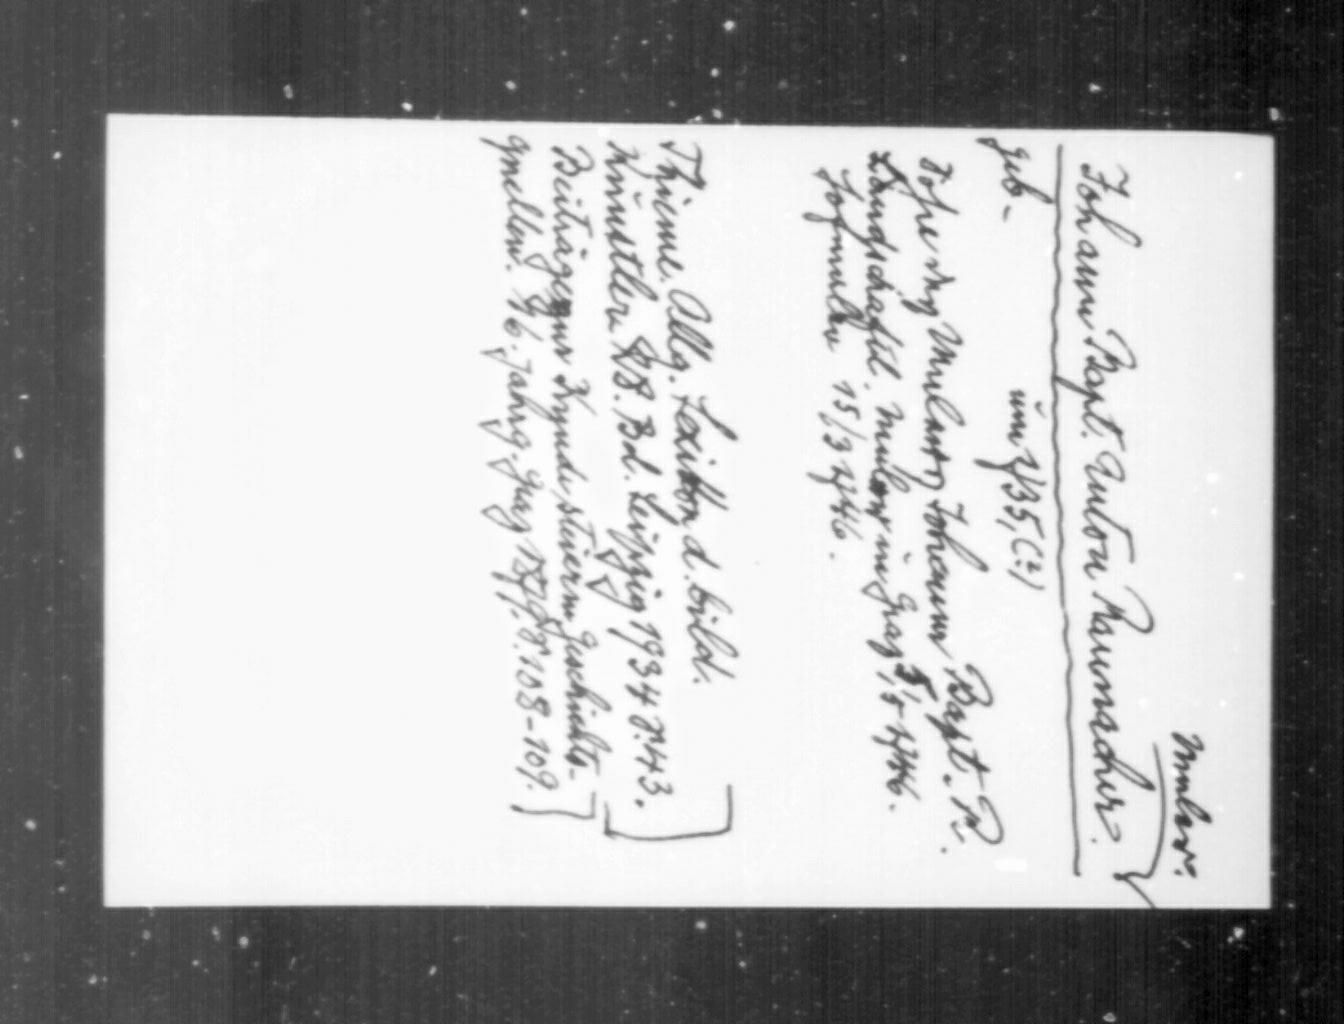 Maler.
Johann Bapt. Anton Raunacher.
geb. um 1735, (?)
Sohn des Malers Johann Bapt. R.
Landschaftl. Maler in Graz 1746.
Hofmaler 15/3 1746.
Thieme. Allg. Lexikon d. bild.
Künstler 28. Bd. Leipzig 1934 S. 43.
Beiträge zur Kunde steierm. Geschichts-
quellen. 16. Jahrg. Graz S. 108-109.